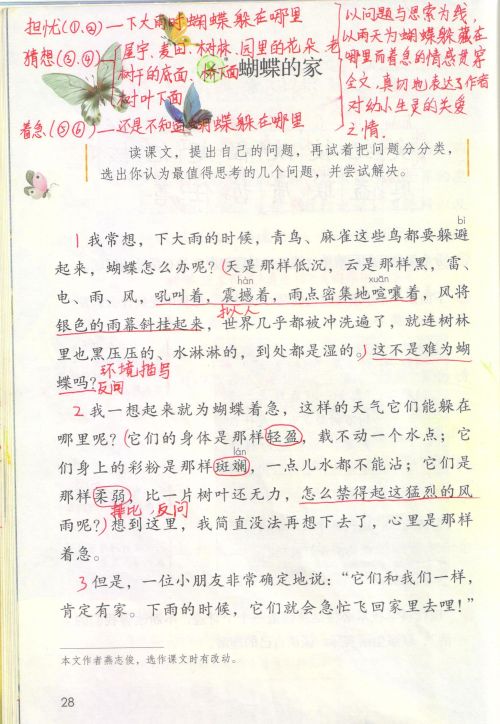 担忧(①.②)—下大雨时蝴蝶躲在哪里
猜想(③.④) 屋宇、麦田、树林、园里的花朵、老
树干的底面、桥下面
树叶下面
着急(⑤⑥)—还是不知道蝴蝶躲在哪里
以问题与思索为线,
以雨天为蝴蝶躲藏在
哪里而着急的情感贯穿
全文,真切地表达了作者
对幼小生灵的关爱
之情.
蝴蝶的家
读课文，提出自己的问题，再试着把问题分分类，
选出你认为最值得思考的几个问题，并尝试解决。
bì
1 我常想，下大雨的时候，青鸟、麻雀这些鸟都要躲避
起来，蝴蝶怎么办呢？(天是那样低沉，云是那样黑，雷、
hàn xuān
电、雨、风，吼叫着，震撼着，雨点密集地喧嚷着，风将
拟人
银色的雨幕斜挂起来，世界几乎都被冲洗遍了，就连树林
里也黑压压的、水淋淋的，到处都是湿的。)这不是难为蝴
环境描写
蝶吗？反问
2 我一想起来就为蝴蝶着急，这样的天气它们能躲在
哪里呢？(它们的身体是那样轻盈，载不动一个水点；它
lán
们身上的彩粉是那样斑斓，一点儿水都不能沾；它们是
那样柔弱，比一片树叶还无力，怎么禁得起这猛烈的风
排比、反问
雨呢？)想到这里，我简直没法再想下去了，心里是那样
着急。
3 但是，一位小朋友非常确定地说：“它们和我们一样，
肯定有家。下雨的时候，它们就会急忙飞回家里去哩！”
本文作者燕志俊，选作课文时有改动。
28